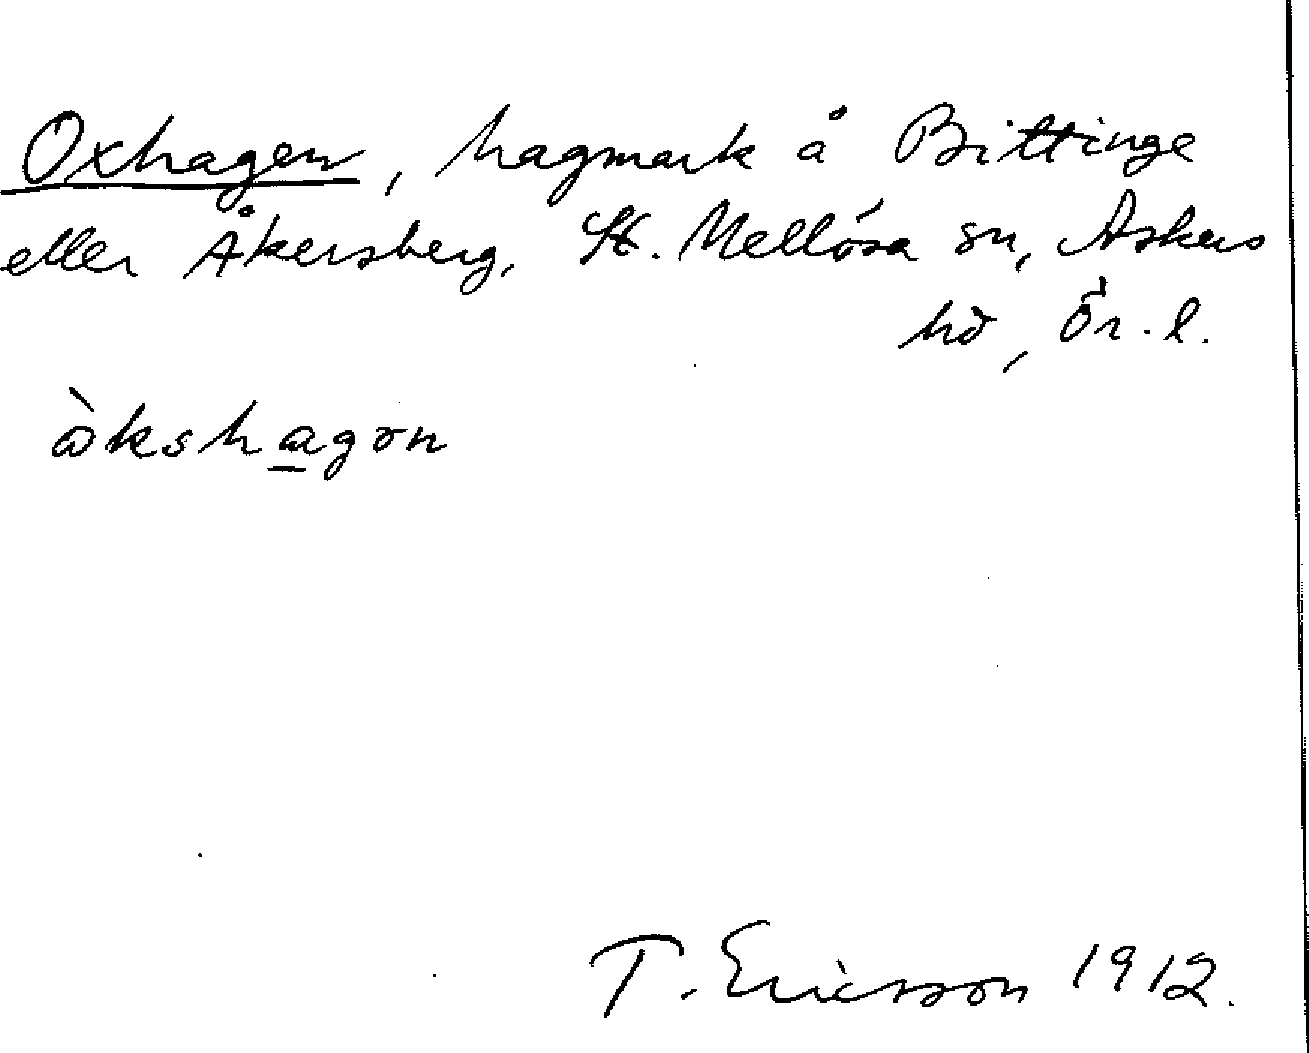 Oxhagen, hagmark å Bittinge
eller Åkersberg, St. Mellösa sn, Askers
hd, Ör. l.
òkshagən
T. Ericsson 1912.